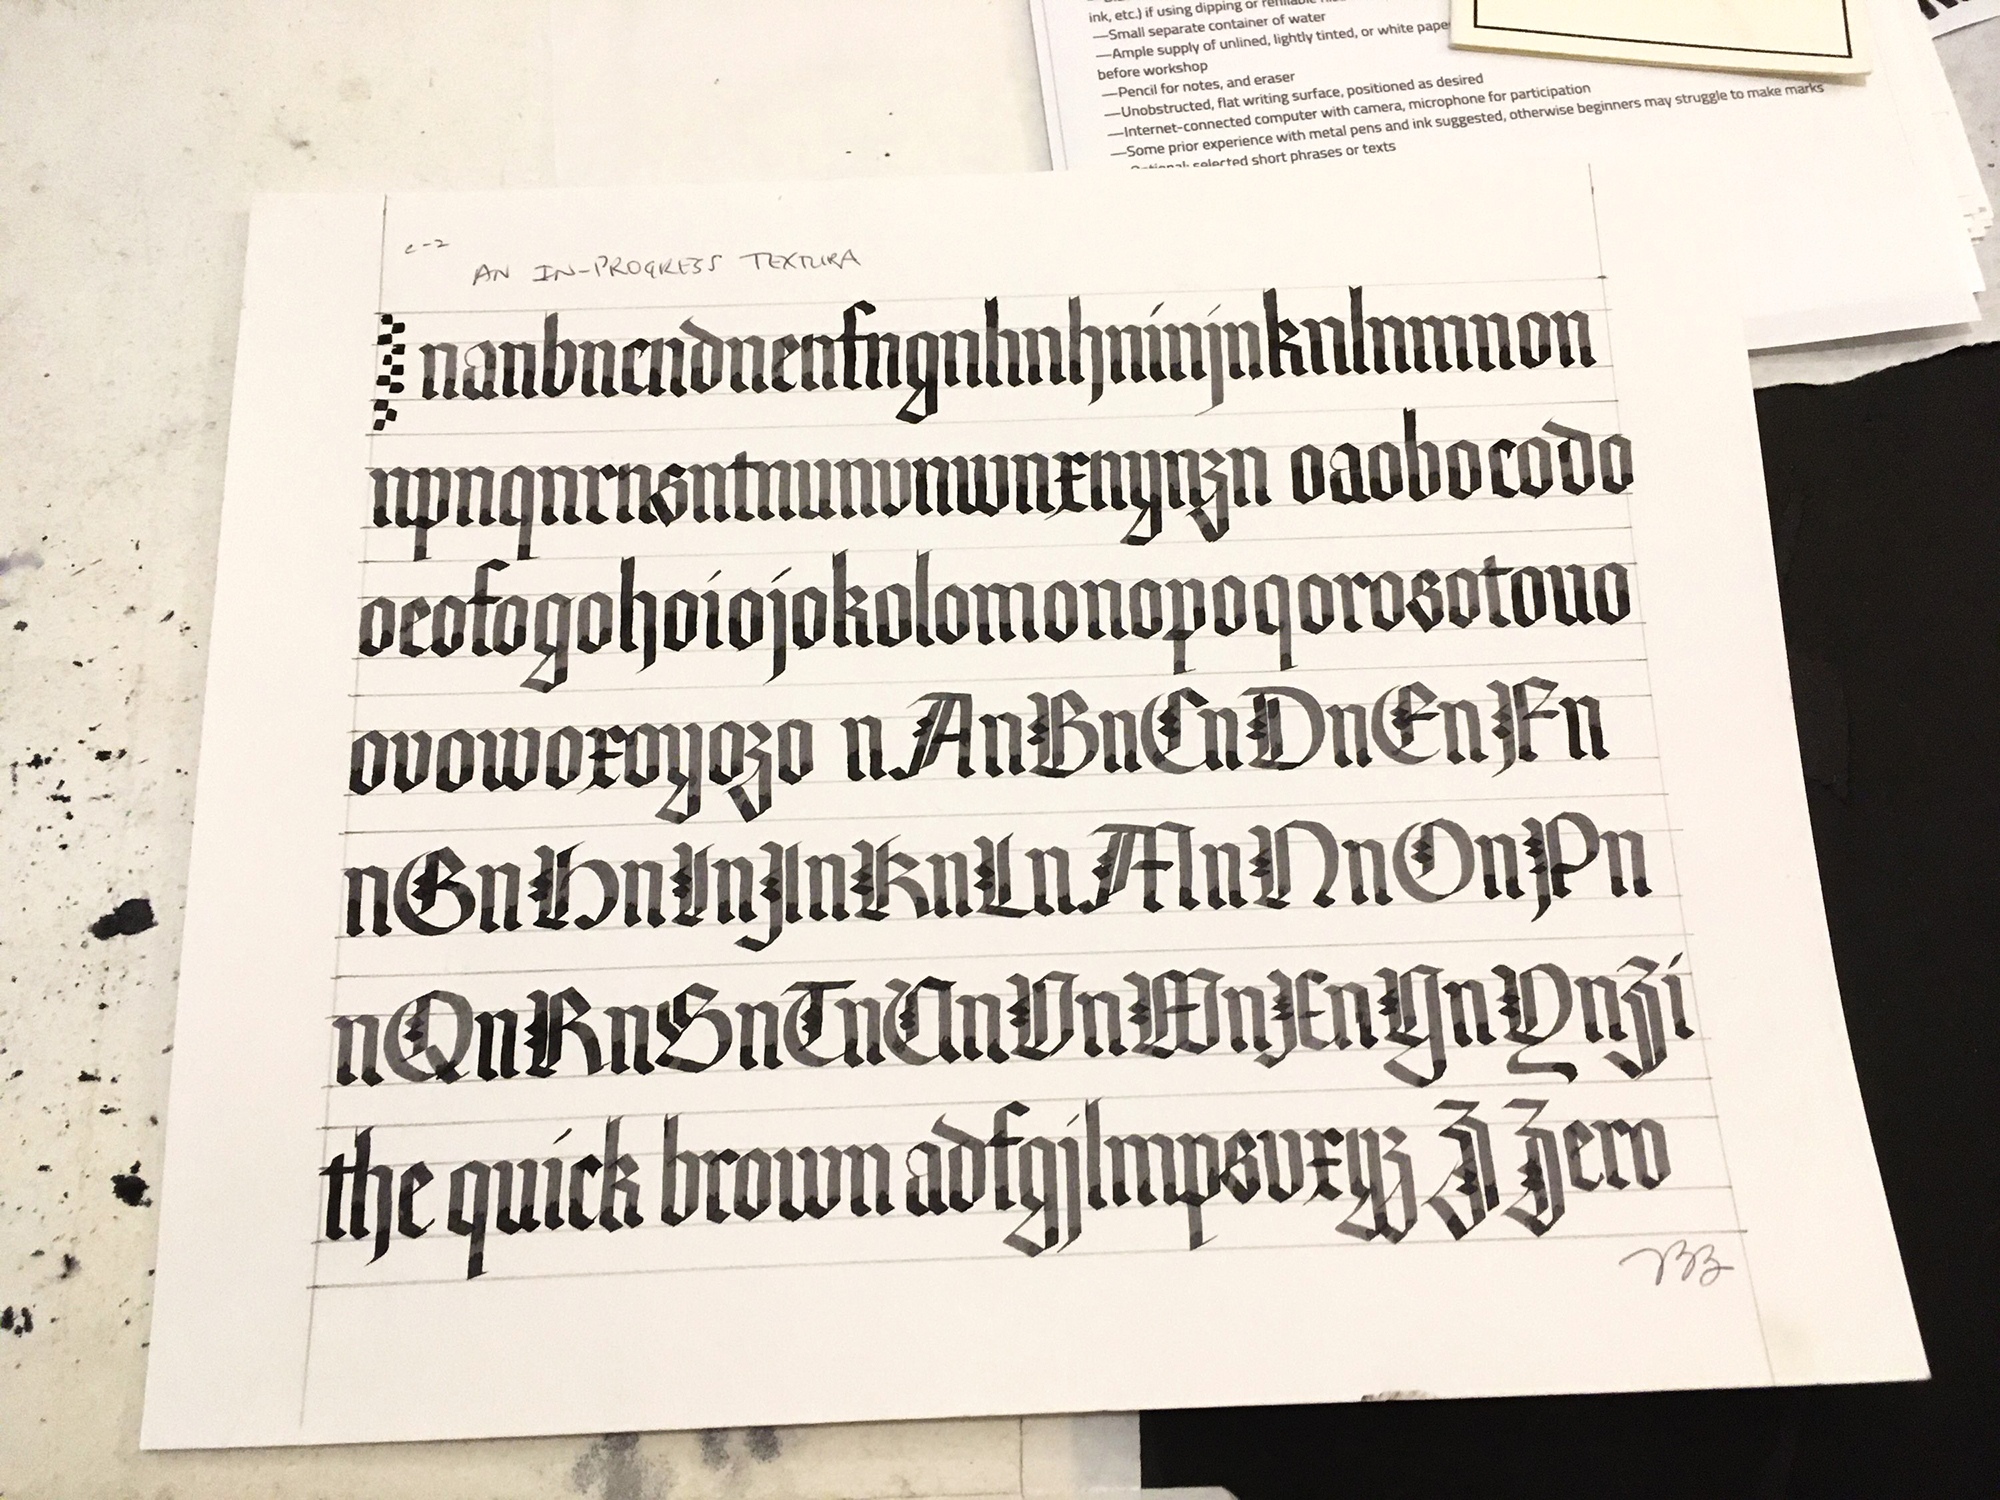 ink, etc.) if using dipping or refillable
—Small separate container of water
—Ample supply of unlined, lightly tinted, or white
before workshop
—Pencil for notes, and eraser
—Unobstructed, flat writing surface, positioned as desired
—Internet-connected computer with camera, microphone for participation
—Some prior experience with metal pens and ink suggested, otherwise beginners may struggle to make marks
selected short phrases or texts
c-2
AN IN-PROGRESS TEXTURA
nanbncndnenfngnhnhninjnknlnmnon
npnqnrnsntnunvnwnxnynzn oaobocodo
oeofogohoiojokolomonopoqorosotouo
ovowoxoyozo nAnBnCnDnEnFn
nGnHnInJnKnLnMnNnOnPn
nQnRnSnTnUnVnWnXnYnYnZi
the quick brown adfgjlmpsvxyz Z Zero